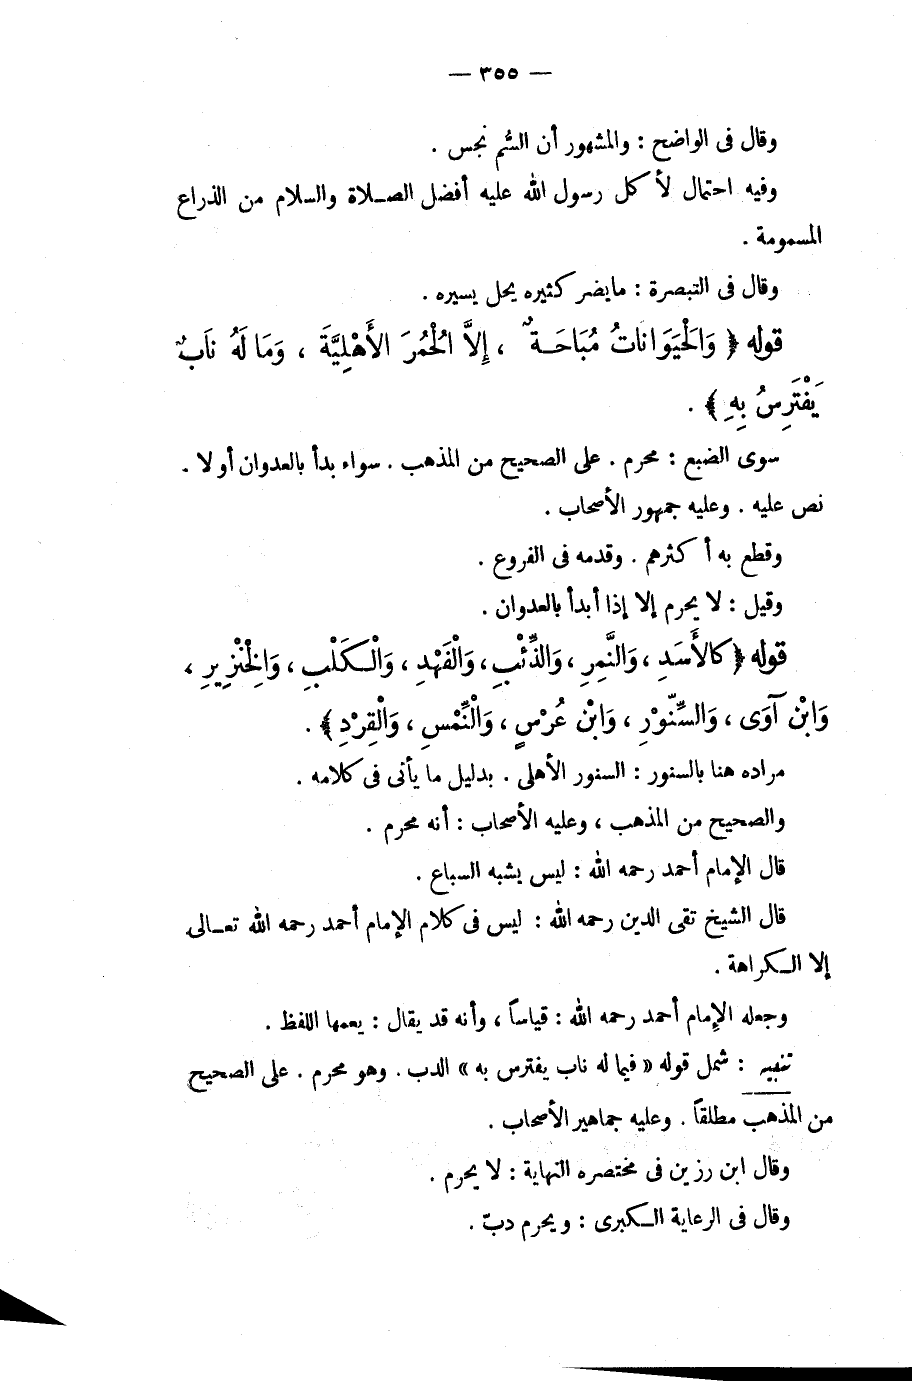 — ٣٥٥ —
وقال فى الواضح : والمشهور أن السُّم نجس .
وفيه احتمال لأكل رسول الله عليه أفضل الصلاة والسلام من الذراع
المسمومة .
وقال فى التبصرة : مايضر كثيره يحل يسيره .
قوله ﴿ وَالْحَيَوَانَاتُ مُبَاحَةٌ ، إِلاَّ الْحُمُرَ الأَهْلِيَّةَ ، وَمَا لَهُ نَابٌ
يَفْتَرِسُ بِهِ ﴾ .
سوى الضبع : محرم . على الصحيح من المذهب . سواء بدأ بالعدوان أو لا .
نص عليه . وعليه جمهور الأصحاب .
وقطع به أكثرهم . وقدمه فى الفروع .
وقيل : لا يحرم إلا إذا أبدأ بالعدوان .
قوله ﴿ كالأَسَدِ ، وَالنَّمِرِ ، وَالذِّئْبِ ، وَالْفَهْدِ ، وَالْكَلْبِ ، وَالْخِنْزِيرِ ،
وَابْنِ آوَى ، وَالسِّنَّوْرِ ، وَابْنِ عُرْسٍ ، وَالنِّمْسِ ، وَالْقِرْدِ ﴾ .
مراده هنا بالسنور : السنور الأهلى . بدليل ما يأتى فى كلامه .
والصحيح من المذهب ، وعليه الأصحاب : أنه محرم .
قال الإمام أحمد رحمه الله : ليس يشبه السباع .
قال الشيخ تقى الدين رحمه الله : ليس فى كلام الإمام أحمد رحمه الله تعالى
إلا الكراهة .
وجعله الإمام أحمد رحمه الله : قياساً ، وأنه قد يقال : يعمها اللفظ .
تنبيه : شمل قوله « فيما له ناب يفترس به » الدب . وهو محرم . على الصحيح
من المذهب مطلقاً . وعليه جماهير الأصحاب .
وقال ابن رزين فى مختصره النهاية : لا يحرم .
وقال فى الرعاية الكبرى : ويحرم دبّ .